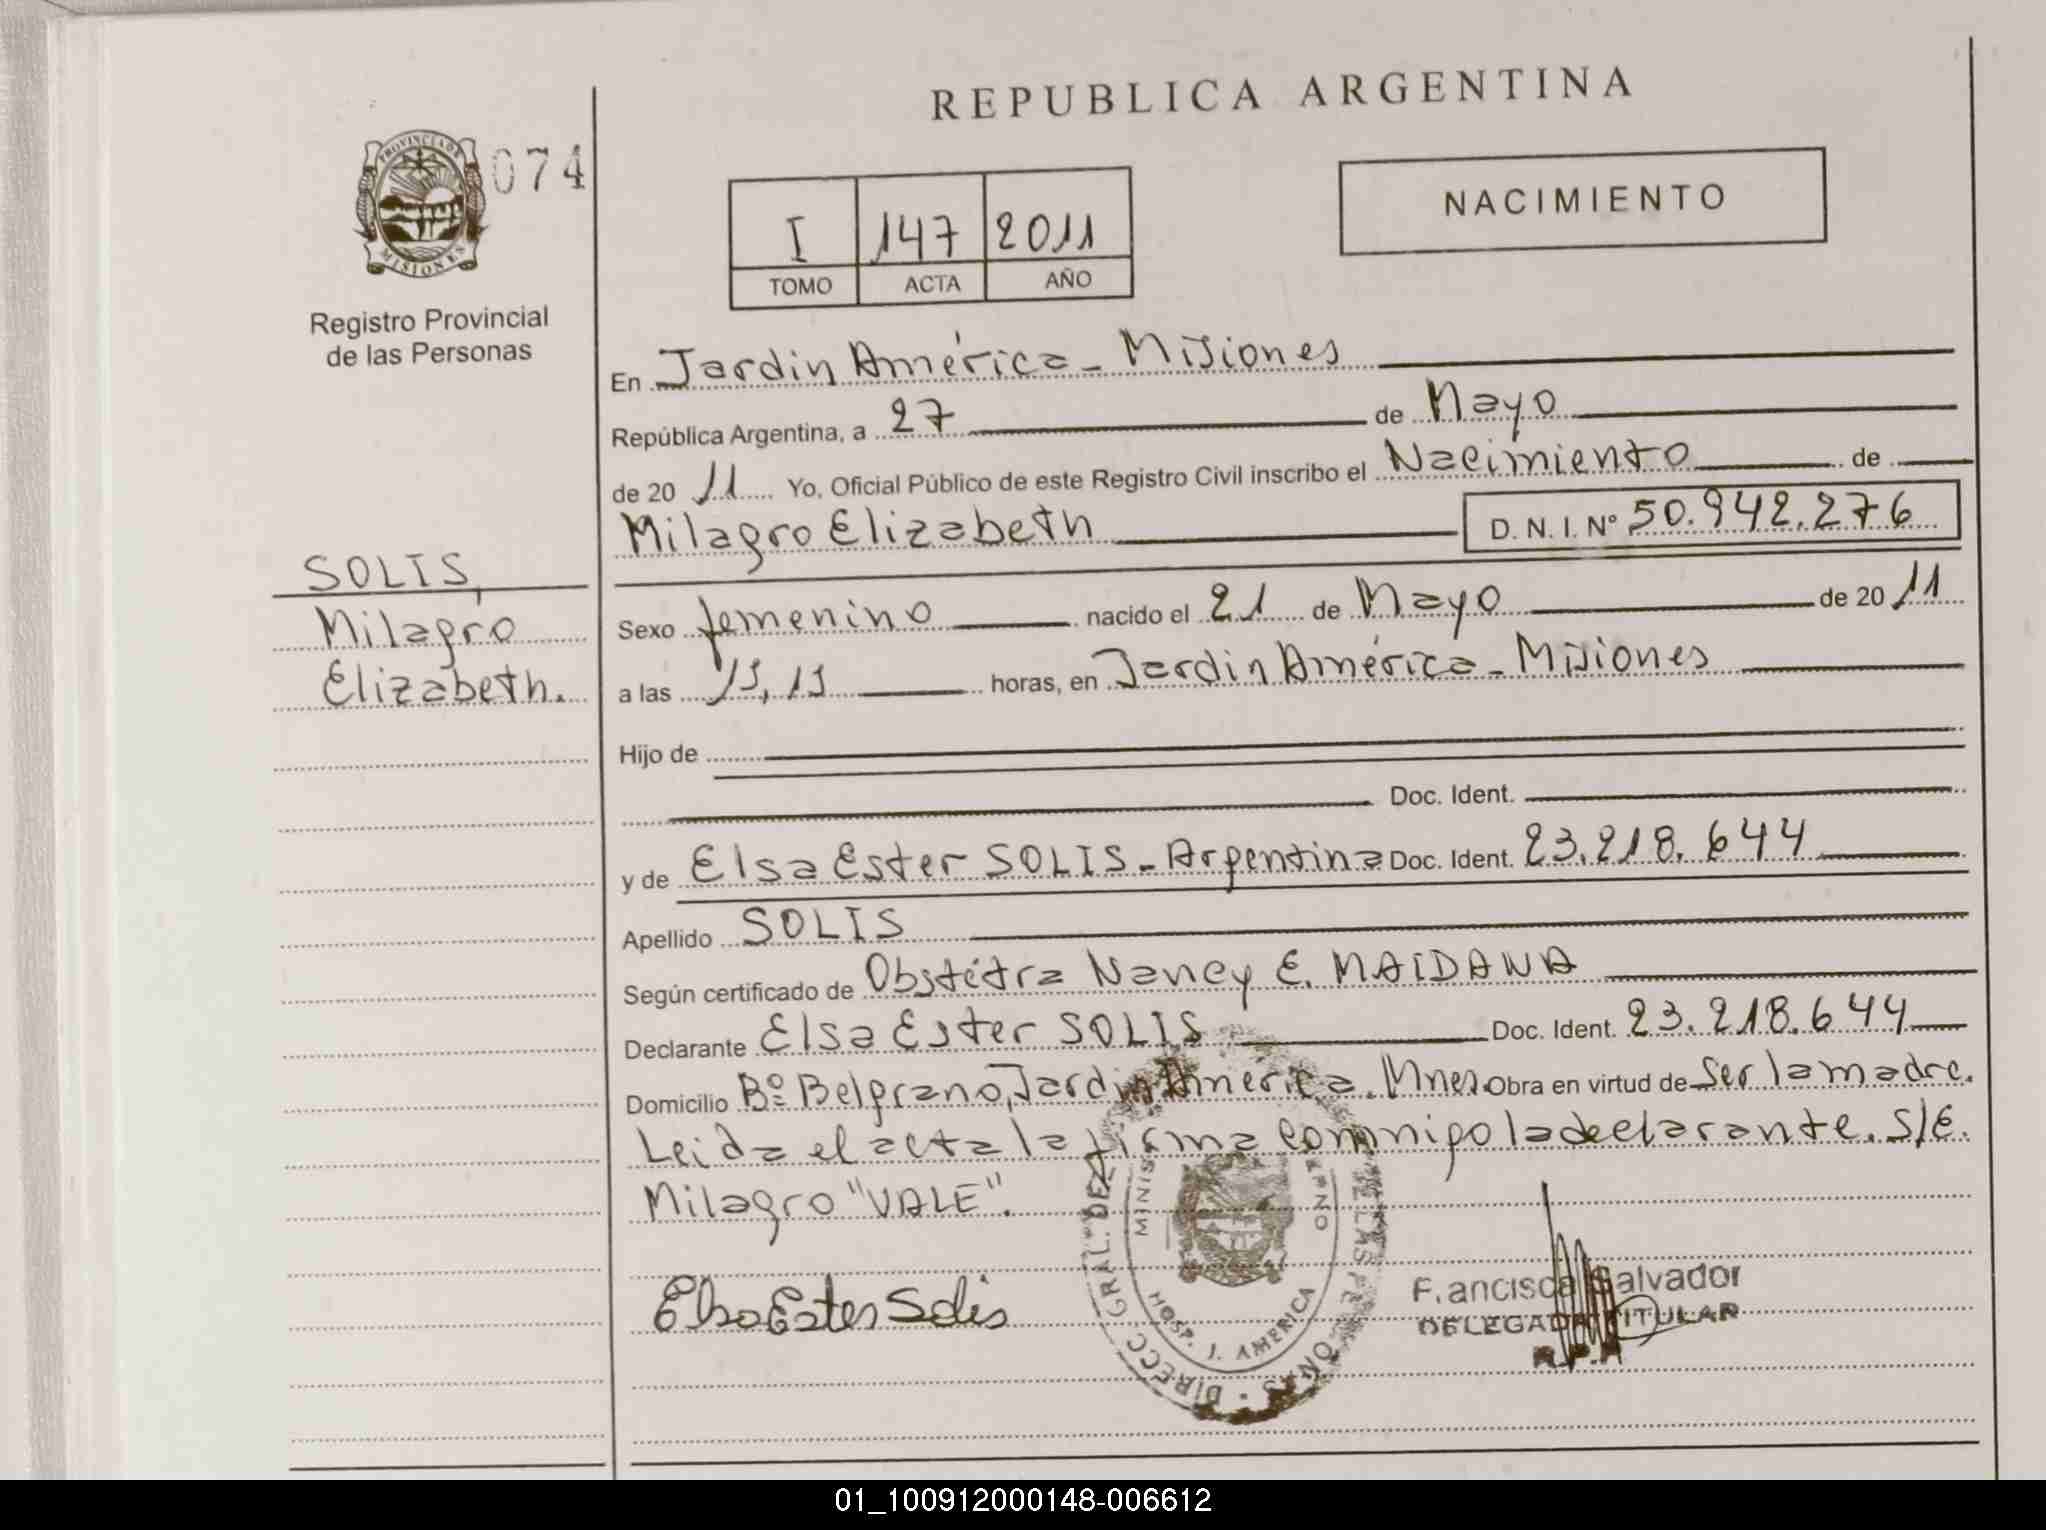 REPUBLICA ARGENTINA
PROVINCIA DE
MISIONES
074
Registro Provincial
de las Personas
I 147 2011
TOMO ACTA AÑO
NACIMIENTO
En Jardin América - Misiones
República Argentina, a 27 de Mayo
de 20 11 Yo, Oficial Público de este Registro Civil inscribo el Nacimiento de
Milagro Elizabeth D. N. I. Nº 50.942.276
SOLIS,
Milagro
Elizabeth.
Sexo femenino nacido el 21 de Mayo de 20 11
a las horas, en Jardin América - Misiones
Hijo de
Doc. Ident.
y de Elsa Ester SOLIS - Argentina Doc. Ident. 23.218.644
Apellido SOLIS
Según certificado de Obstétra Nancy E. MAIDANA
Declarante Elsa Ester SOLIS Doc. Ident. 23.218.644
Domicilio Bº Belgrano, Jardin América. Mnes. Obra en virtud de ser la madre.
Leida el acta la firma conmigo la declarante. S/E.
Milagro "VALE".
Elsa Ester Solis
DIRECC GRAL. DE LAS
HOSP. J. AMERICA
F.ancisca Salvador
DELEGADA TITULAR
R.P.P
01_100912000148-006612